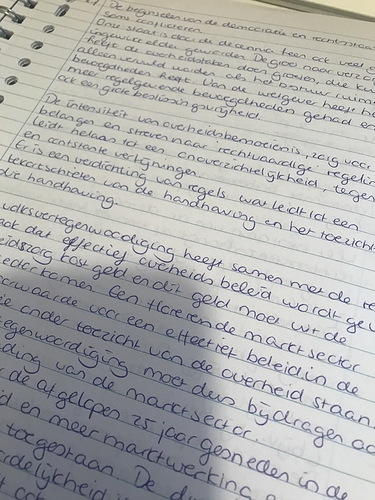 De beginselen van de democratie en rechtsstaat
soms conflicteren.
Onze staat is door de decennia heen ook veel
ingewikkelder geworden. De groei naar verzor
heeft de overheidstaken doen groeien, die kun
alleen vervuld worden als het bestuur ruime
bevoegdheden heeft. Van de wetgever heeft he
meer regelgevende bevoegdheden gehad en
ook een grote beslissingsvrijheid.
De intensiteit van overheidsbemoeienis, zorg voor
belangen en streven naar rechtvaardige regelin
leidt helaas tot een onoverzichtelijkheid, tegen
en constante verfijningen.
Er is een verdichting van regels, wat leidt tot een
tekortschieten van de handhaving en het toezicht
die handhaving.
volksvertegenwoordiging heeft samen met de re
aak dat effectief overheidsbeleid wordt gev
eidszorg kost geld en dit geld moet uit de
ector komen. Een florerende marktsector
orwaarde voor een effectief beleid in de
ie onder toezicht van de overheid staan.
tegenwoordiging moet dus bijdragen aa
ding van de marktsector.
de afgelopen 25 jaar gesneden in de
id en meer marktwerking e
toegestaan. De di
rdelijkheid